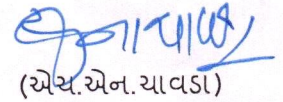 (એચ.એન.ચાવડા)